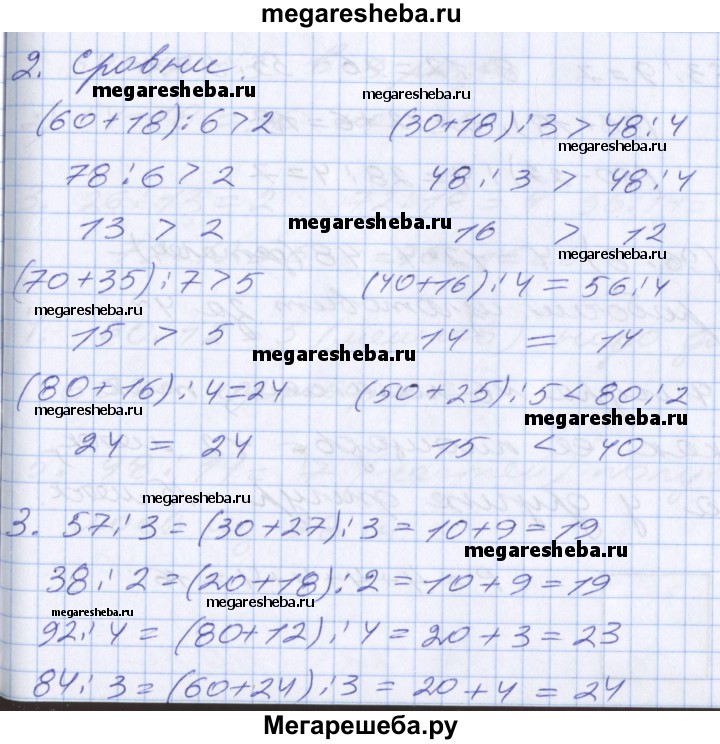 megaresheba.ru
2. Сравни.
megaresheba.ru megaresheba.ru
(60+18):6>2 (30+18):3>48:4
78:6>2 48:3>48:4
megaresheba.ru
13 > 2 16 > 12
megaresheba.ru
(70+35):7>5 (40+16):4=56:4
megaresheba.ru megaresheba.ru
15 > 5 14 = 14
megaresheba.ru
(80+16):4=24 (50+25):5<80:2
megaresheba.ru megaresheba.ru
24 = 24 15 < 40
megaresheba.ru
3. 57:3=(30+27):3=10+9=19
megaresheba.ru
38:2=(20+18):2=10+9=19
megaresheba.ru megaresheba.ru
92:4=(80+12):4=20+3=23
84:3=(60+24):3=20+4=24
Мегарешеба.ру